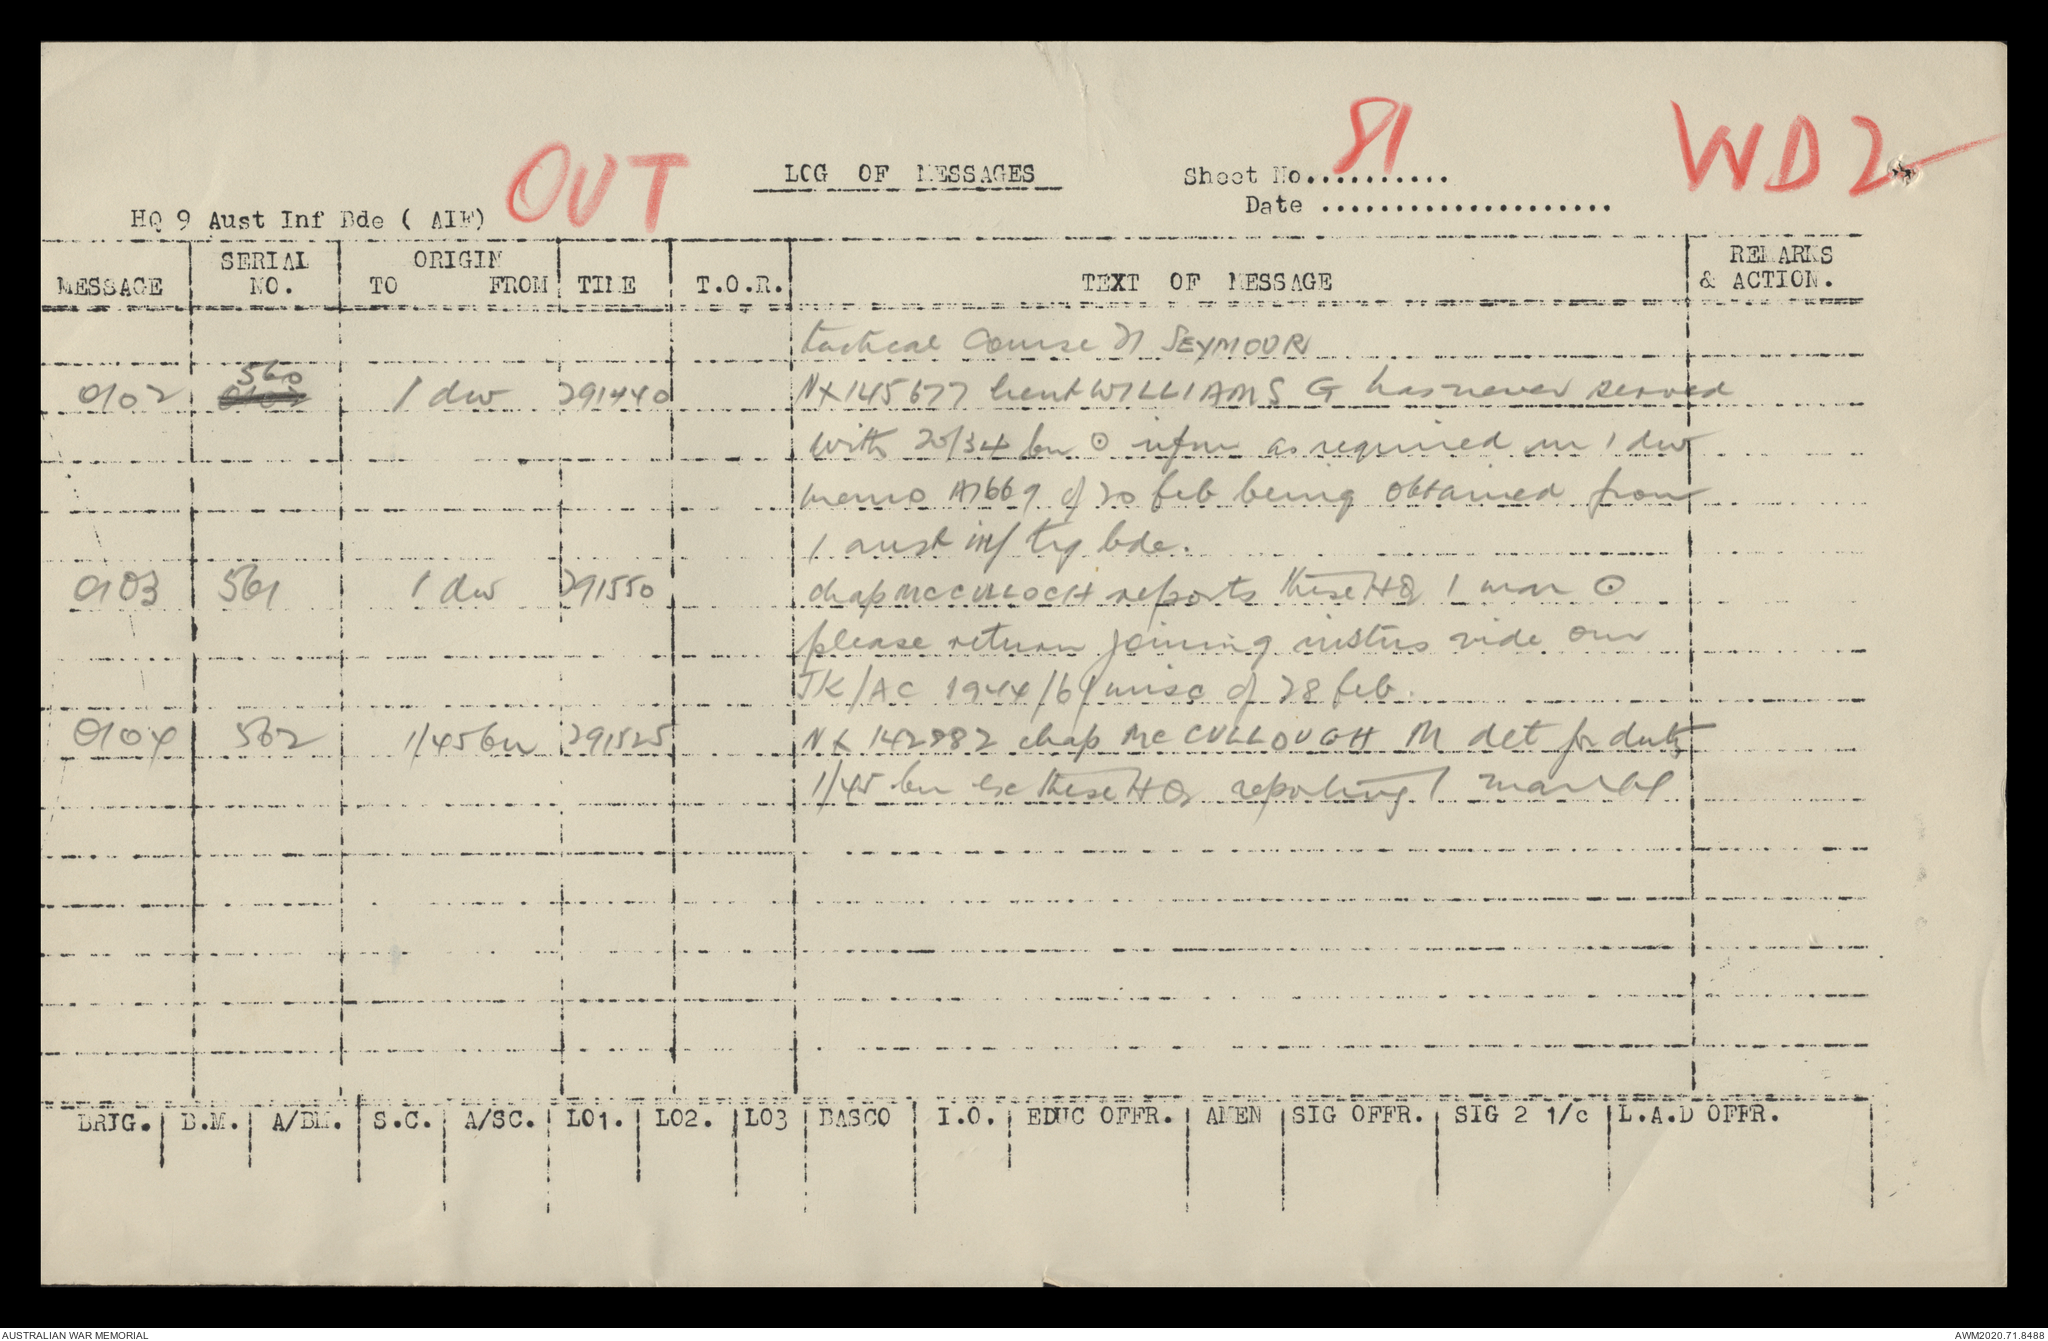 OUT
LOG OF MESSAGES
Sheet No........... 81
WD2
Date ....................
HQ 9 Aust Inf Bde ( AIF)
MESSAGE SERIAL NO. ORIGIN TO FROM TIME T.O.R. TEXT OF MESSAGE REMARKS & ACTION.
tactical course 21 SEYMOUR
0102 560 1 div 291440 NX145677 lieut WILLIAMS G has never served
with 20/34 bn ⊙ infm as required in 1 div
memo A7669 of 20 feb being obtained from
1 aust inf trg bde.
0103 561 1 div 291550 chap MCCULLOCH reports these HQ 1 mar ⊙
please return joining instns vide our
JK/AC 1944/61 misc of 28 feb.
0104 562 1/45 bn 291525 NX 142982 chap MC CULLOUGH M det for duty
1/45 bn ex these HQ reporting 1 mar
BRIG. B.M. A/BM. S.C. A/SC. LO1. LO2. LO3 BASCO I.O. EDUC OFFR. AMEN SIG OFFR. SIG 2 1/c L.A.D OFFR.
AUSTRALIAN WAR MEMORIAL AWM2020.71.8488